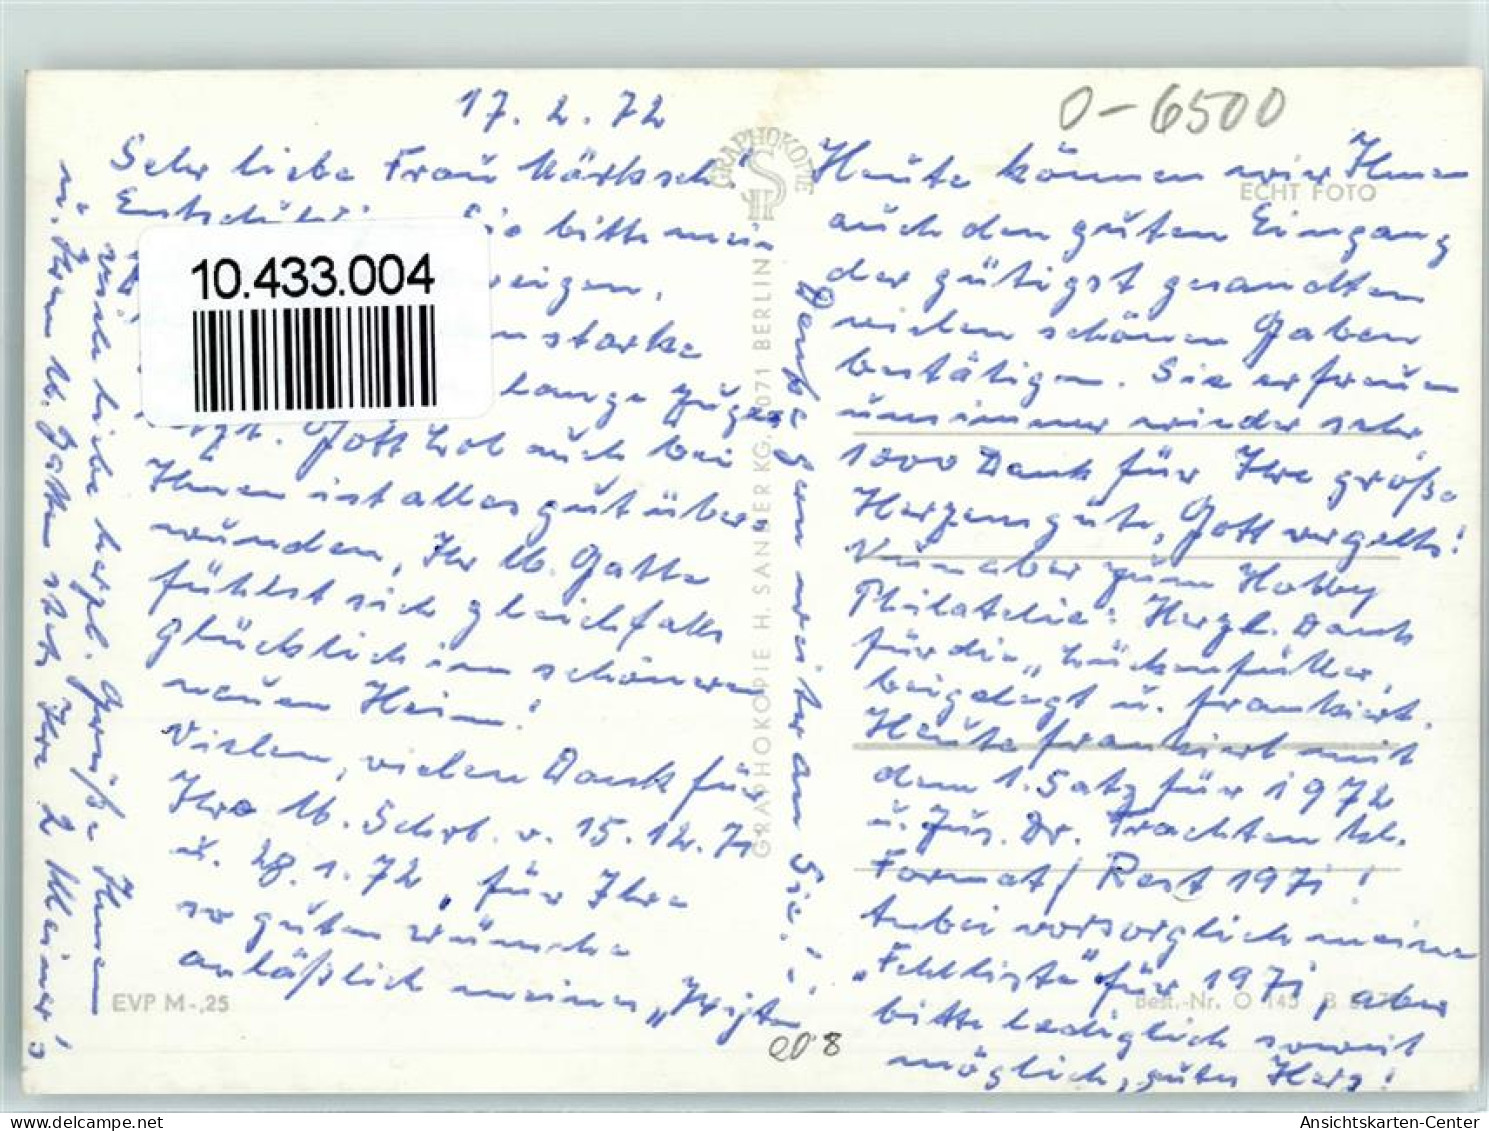 17. 2. 72
Sehr liebe Frau
Sie bitte mein
10.433.004
starke
lange
Gott Lob auch bei
Ihnen ist alles gut über-
wunden, Ihr lb. Gatte
fühlt sich gleichfalls
glücklich im schönen
neuen Heim!
Vielen, vielen Dank für
Ihre lb. Schrb. v. 15.12.71
u. 28.1.72, für Ihre
so guten Wünsche
anläßlich meines
EVP M-,25
208
GRAPHOKOPIE
GRAPHOKOPIE H. SANDER KG. 1071 BERLIN
0-6500
ECHT FOTO
Heute können wir Ihnen
auch den guten Eingang
der gütigst gesandten
vielen schönen Gaben
bestätigen. Sie erfreuen
uns immer wieder sehr
1000 Dank für Ihre große
Herzensgüte, Gott vergelts!
Nun aber zum Hobby
Philatelie: Herzl. Dank
für die „Lückenfüller,
beigelegt u. frankiert.
Heute frankiert mit
dem 1. Satz für 1972
u. Zus. Dr. Trachten kl.
Format/ Rest 1971!
Anbei vorsorglich meine
„Fehlliste" für 1971, aber
bitte lediglich soweit
möglich, gutes Herz!
Best.-Nr. O 145 B
Danke gern weiter an Sie!
viele liebe herzl. Grüße Ihnen
u. Ihrem lb. Gatten stets Ihre 2
delcampe.net
Ansichtskarten-Center